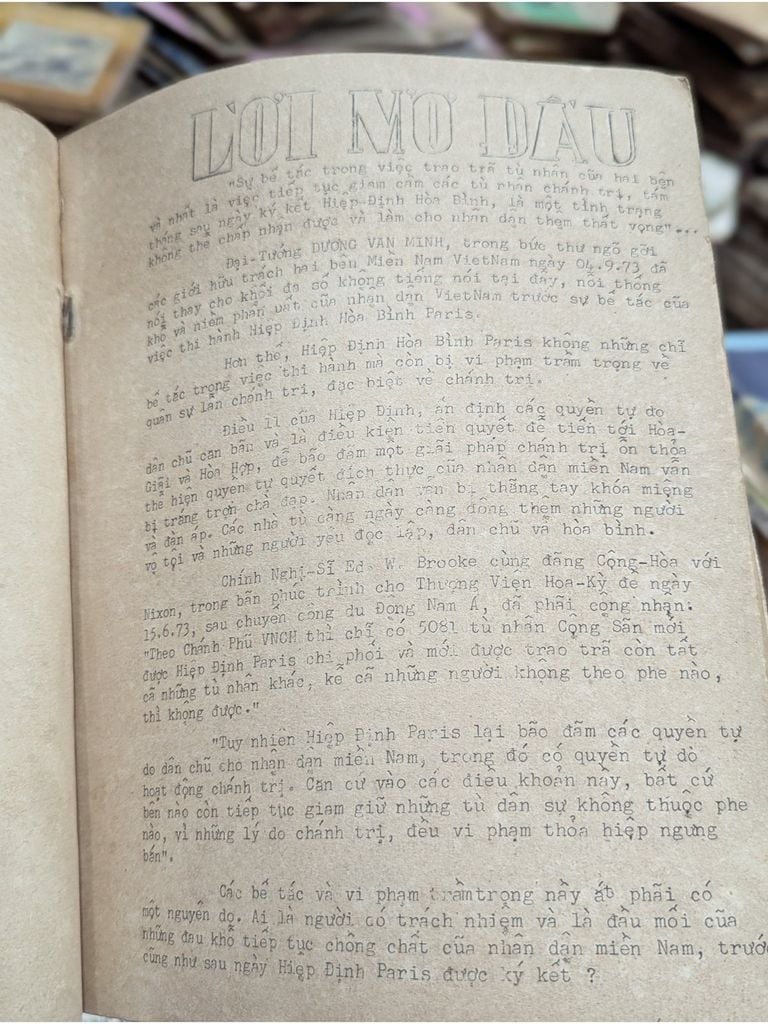 LỜI MỞ ĐẦU
"Sự bế tắc trong việc trao trã tù nhân của hai bên
và nhất là việc tiếp tục giam cầm các tù nhân chánh trị, tám
tháng sau ngày ký kết Hiệp-Định Hòa Bình, là một tình trạng
không thể chấp nhận được và làm cho nhân dân thêm thất vọng"...
Đại-Tướng DƯƠNG VĂN MINH, trong bức thư ngõ gởi
các giới hữu trách hai bên Miền Nam VietNam ngày 04.9.73 đã
nói thay cho khối đa số không tiếng nói tại đây, nỗi thống
khổ và niềm phẩn uất của nhân dân VietNam trước sự bế tắc của
việc thi hành Hiệp Định Hòa Bình Paris.
Hơn thế, Hiệp Định Hòa Bình Paris không những chỉ
bế tắc trong việc thi hành mà còn bị vi phạm trầm trọng về
quân sự lẫn chánh trị, đặc biệt về chánh trị.
Điều 11 của Hiệp Định, ấn định các quyền tự do
dân chũ căn bãn và là điều kiện tiên quyết để tiến tới Hòa-
Giãi và Hòa Hợp, để bão đãm một giãi pháp chánh trị ổn thỏa
thể hiện quyền tự quyết đích thực của nhân dân miền Nam vẫn
bị trắng trợn chà đạp. Nhân dân vẫn bị thẵng tay khóa miệng
và đàn áp. Các nhà tù càng ngày càng đông thêm những người
vô tội và những người yêu độc lập, dân chũ và hòa bình.
Chính Nghị-Sĩ Ed. W. Brooke cùng đãng Cộng-Hòa với
Nixon, trong bãn phúc trình cho Thượng Viện Hoa-Kỳ đề ngày
15.6.73, sau chuyến công du Đông Nam Á, đã phãi công nhận:
"Theo Chánh Phũ VNCH thì chĩ có 5081 tù nhân Cộng Sãn mới
được Hiệp Định Paris chi phối và mới được trao trã còn tất
cã những tù nhân khác, kể cã những người không theo phe nào,
thì không được."
"Tuy nhiên Hiệp Định Paris lại bão đãm các quyền tự
do dân chũ cho nhân dân miền Nam, trong đó có quyền tự do
hoạt động chánh trị. Căn cứ vào các điều khoản này, bất cứ
bên nào còn tiếp tục giam giữ những tù dân sự không thuộc phe
nào, vì những lý do chánh trị, đều vi phạm thỏa hiệp ngưng
bắn".
Các bế tắc và vi phạm trầmtrọng nầy ắt phãi có
một nguyên do. Ai là người có trách nhiệm và là đầu mối của
những đau khổ tiếp tục chồng chất của nhân dân miền Nam, trước
cũng như sau ngày Hiệp Định Paris được ký kết ?